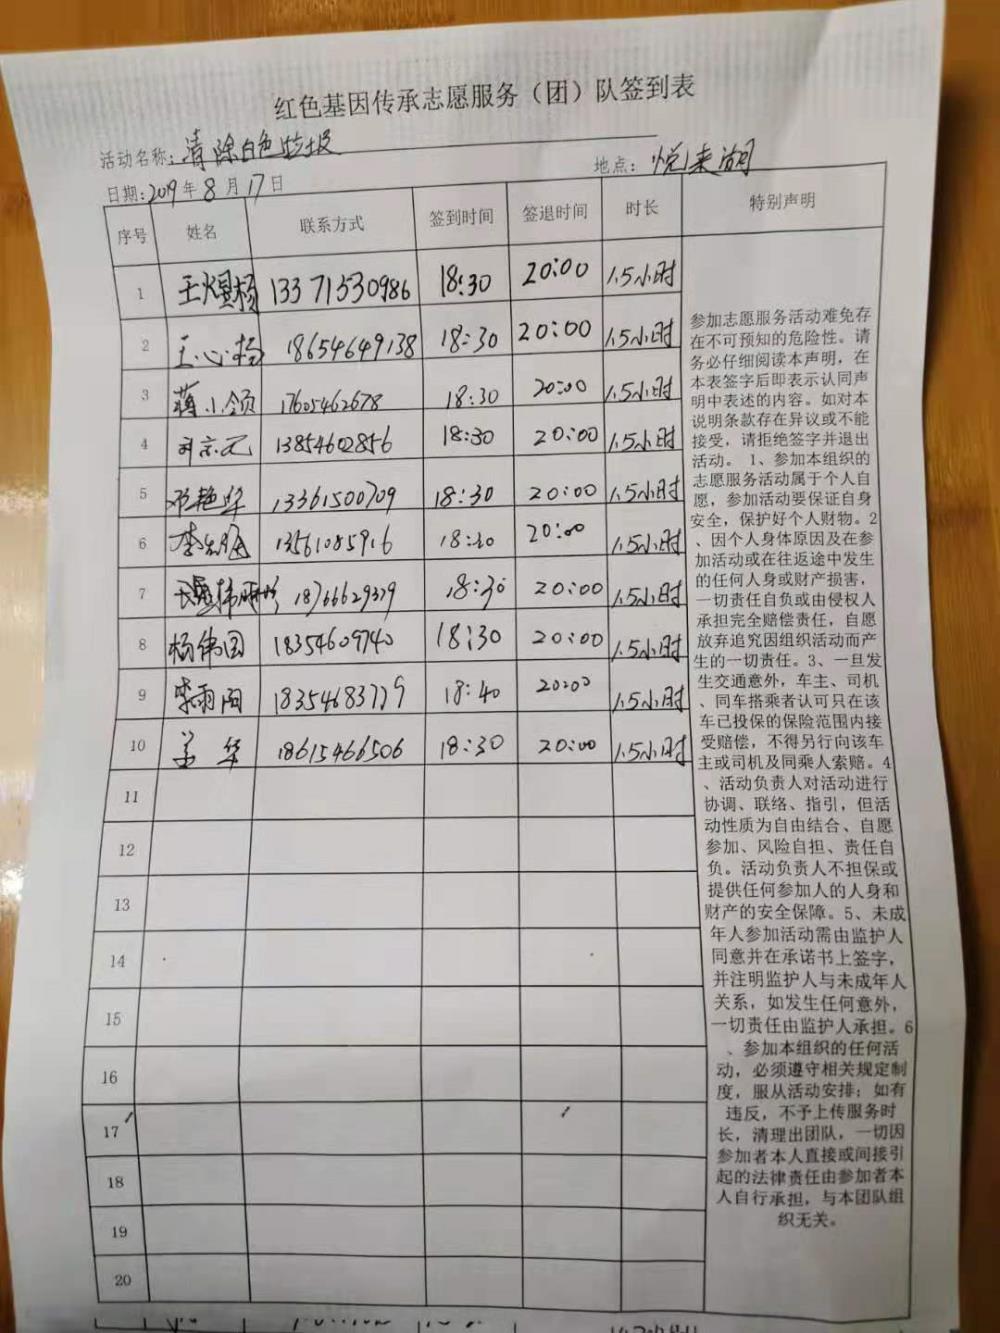 红色基因传承志愿服务（团）队签到表
活动名称：清除白色垃圾
地点：悦来湖
日期：2019年8月17日
序号 姓名 联系方式 签到时间 签退时间 时长 特别声明
1 王煜杨 13371530986 18:30 20:00 1.5小时
2 王心杨 18654649138 18:30 20:00 1.5小时
3 蒋小领 17605462678 18:30 20:00 1.5小时
4 13854602856 18:30 20:00 1.5小时
5 邓艳华 13361500709 18:30 20:00 1.5小时
6 13561085916 18:30 20:00 1.5小时
7 18766629379 18:30 20:00 1.5小时
8 杨伟国 18354609740 18:30 20:00 1.5小时
9 李雨阳 18354683779 18:40 20:00 1.5小时
10 姜华 18615466506 18:30 20:00 1.5小时
11
12
13
14
15
16
17
18
19
20
参加志愿服务活动难免存
在不可预知的危险性。请
务必仔细阅读本声明，在
本表签字后即表示认同声
明中表述的内容。如对本
说明条款存在异议或不能
接受，请拒绝签字并退出
活动。 1、参加本组织的
志愿服务活动属于个人自
愿，参加活动要保证自身
安全，保护好个人财物。2
、因个人身体原因及在参
加活动或在往返途中发生
的任何人身或财产损害，
一切责任自负或由侵权人
承担完全赔偿责任，自愿
放弃追究因组织活动而产
生的一切责任。3、一旦发
生交通意外，车主、司机
、同车搭乘者认可只在该
车已投保的保险范围内接
受赔偿，不得另行向该车
主或司机及同乘人索赔。4
、活动负责人对活动进行
协调、联络、指引，但活
动性质为自由结合、自愿
参加、风险自担、责任自
负。活动负责人不担保或
提供任何参加人的人身和
财产的安全保障。5、未成
年人参加活动需由监护人
同意并在承诺书上签字，
并注明监护人与未成年人
关系，如发生任何意外，
一切责任由监护人承担。6
、参加本组织的任何活
动，必须遵守相关规定制
度，服从活动安排；如有
违反，不予上传服务时
长，清理出团队，一切因
参加者本人直接或间接引
起的法律责任由参加者本
人自行承担，与本团队组
织无关。